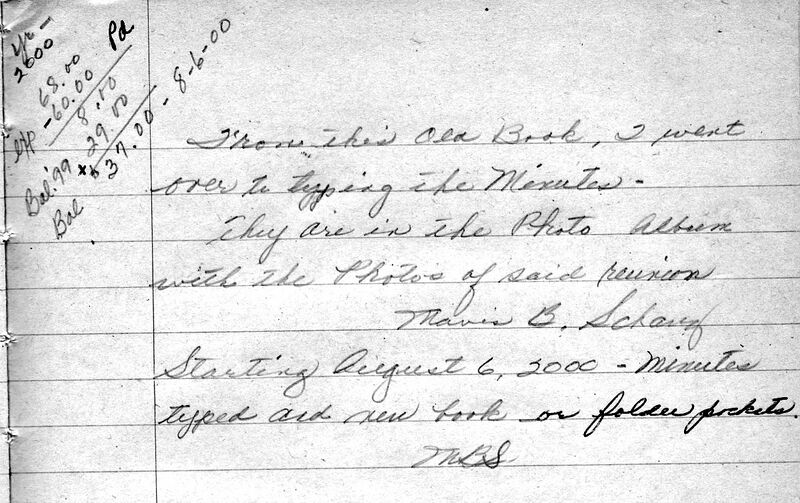 Yr - 2000
Pd
68.00
exp -60.00
8.00
Bal. '99 29.00
Bal 37.00 - 8-6-00
From this Old Book, I went
over to typing the Minutes -
They are in the Photo Album
with the Photos of said reunion
Mavis B.
Starting August 6, 2000 - Minutes
typed and new book or folder pockets.
MBS